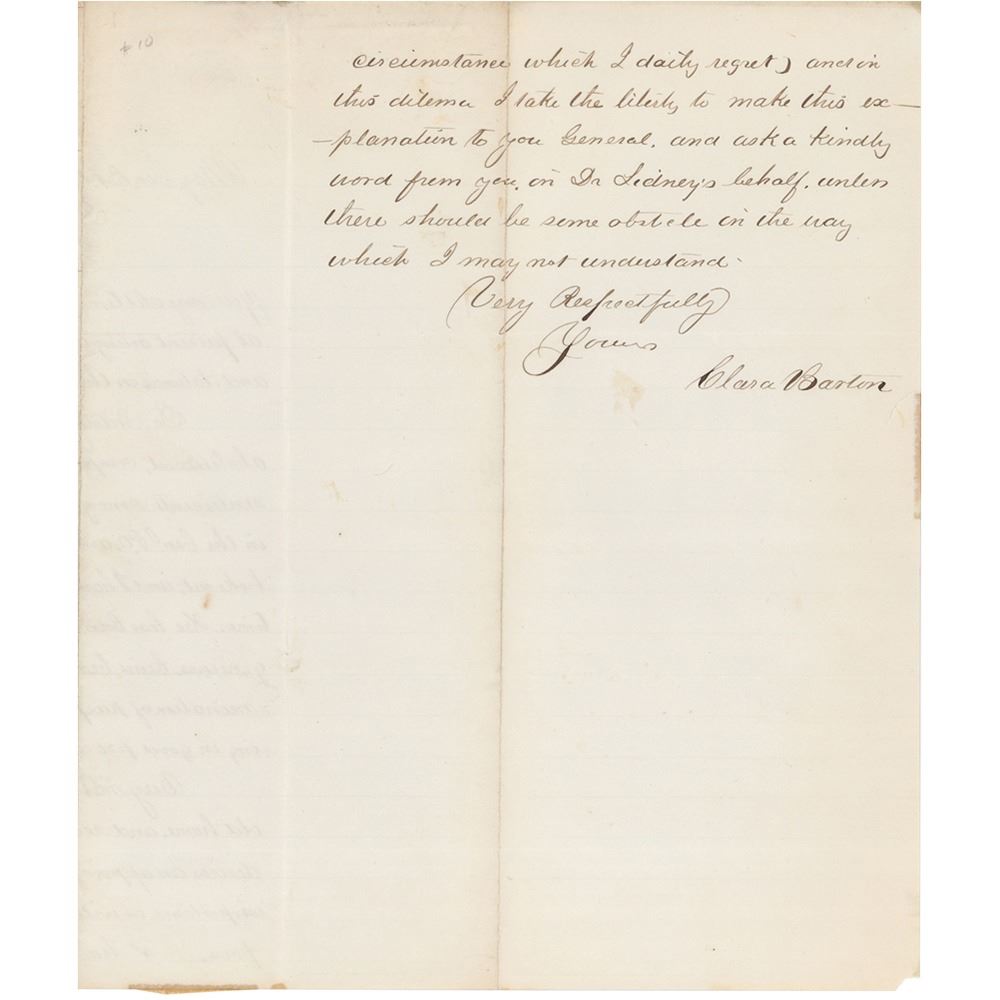 # 10
circumstance which I daily regret) and in
this dilema I take the liberty to make this ex—
—planation to you General, and ask a kindly
word from you, on Dr Sidney's behalf, unless
there should be some obstcle in the way
which I may not understand.
Very Respectfully
Yours
Clara Barton